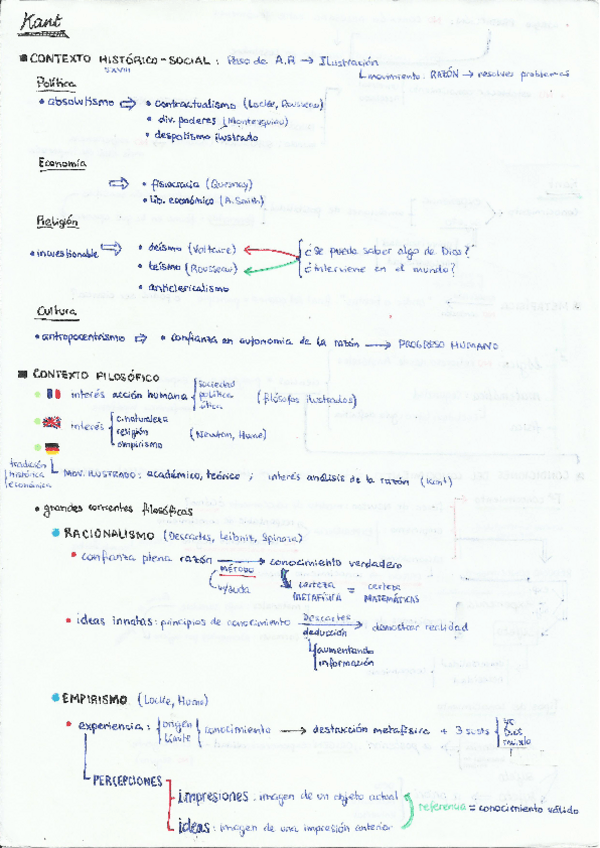 Kant
CONTEXTO HISTÓRICO-SOCIAL: Paso de A.R → Ilustración
S.XVIII
movimiento. RAZÓN → resolver problemas
Política
• absolutismo ⇨ • contractualismo (Locke, Rousseau)
• div. poderes (Montesquieu)
• despotismo ilustrado
Economía
⇨ • fisiocracia (Quesnay)
• lib. económico (A. Smith)
Religión
• incuestionable ⇨ • deísmo (Voltaire) ¿Se puede saber algo de Dios?
• teísmo (Rousseau) ¿Interviene en el mundo?
• anticlericalismo
Cultura
• antropocentrismo ⇨ • confianza en autonomía de la razón → PROGRESO HUMANO
CONTEXTO FILOSÓFICO
interés acción humana sociedad política ética (filósofos ilustrados)
interés c.naturaleza religión empirismo (Newton, Hume)
tradición histórica económica
MOV. ILUSTRADO: académico, teórico; interés análisis de la razón (Kant)
• grandes corrientes filosóficas
RACIONALISMO (Descartes, Leibniz, Spinoza)
• confianza plena razón → conocimiento verdadero
MÉTODO certeza METAFÍSICA = certeza MATEMÁTICAS
duda
• ideas innatas: principios de conocimiento Descartes deducción → demostrar realidad
aumentando información
EMPIRISMO (Locke, Hume)
• experiencia: origen límite conocimiento → destrucción metafísica + 3 susts yo Dios mundo
PERCEPCIONES
impresiones: imagen de un objeto actual
referencia = conocimiento válido
ideas: imagen de una impresión anterior